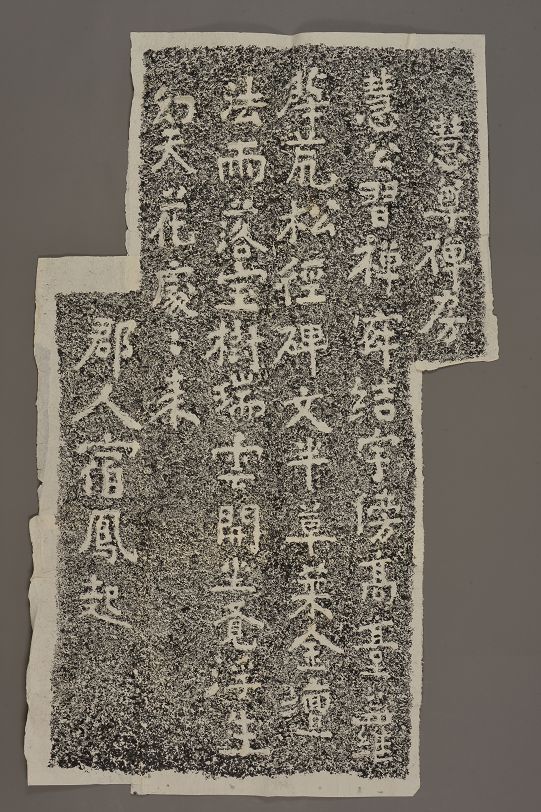 慧尊禪房
慧公習禪寂結宇傍高臺羅
薜荒松徑碑文半草萊金壇
法雨落宝樹瑞雲開坐覺浮生
幻天花處〻来
郡人宿鳳起